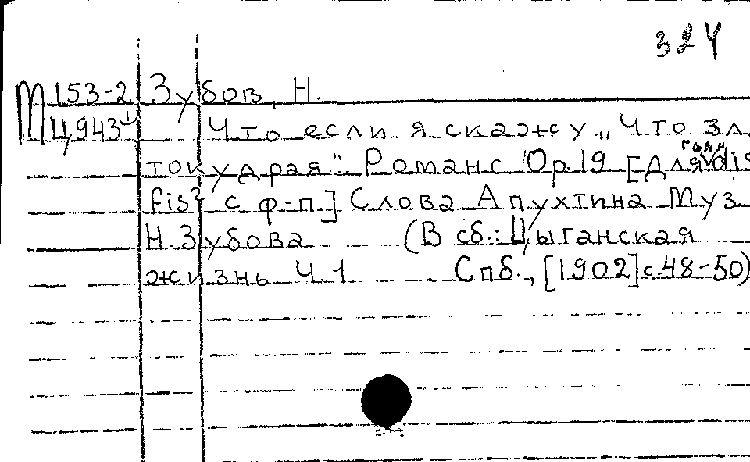 324
М 153-2 Зубов, Н.
Ц943 Что если я скажу „Что зла
токудрая". Романс Op.19 [Для голоса dis
fis² с ф-п.] Слова Апухтина Муз
Н. Зубова (В сб.: Цыганская
жизнь Ч 1 Спб., [1902] с 48-50)